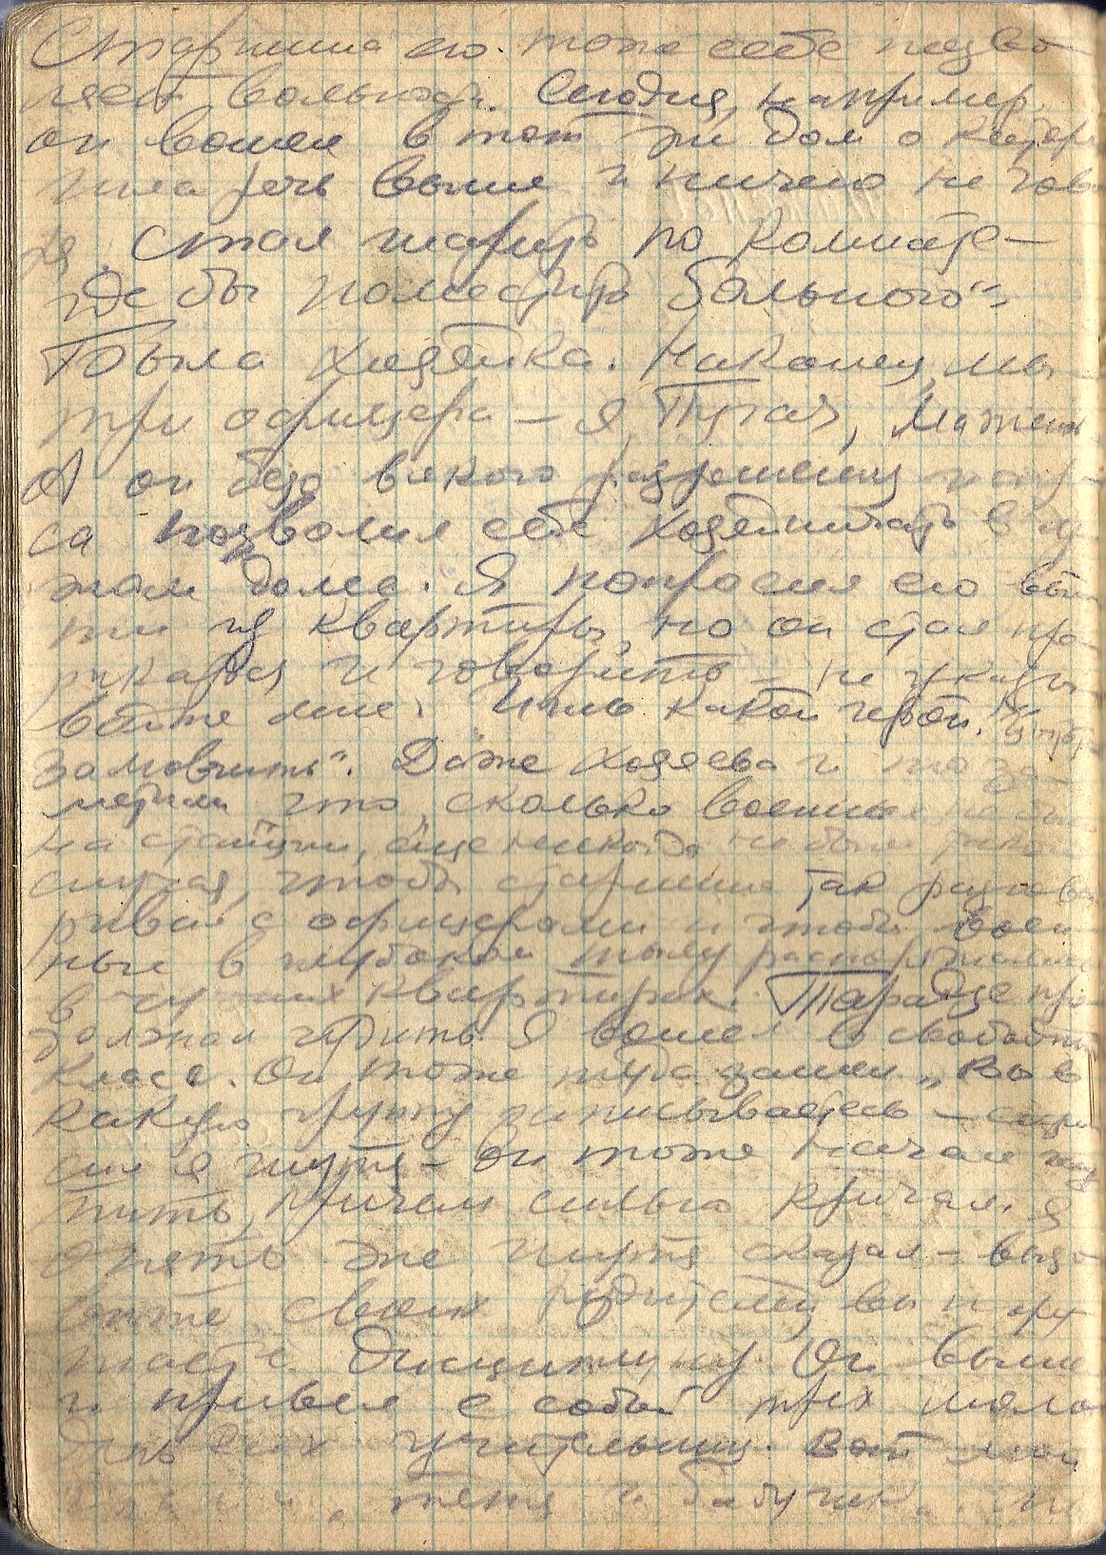 Старшина его тоже себе позво-
ляет вольности. Сегодня, например,
он вошел в тот же дом о котором
шла речь выше и ничего не гово
ря стал шарить по комнате –
где бы поместить больного".
Тут была хозяйка. Наконец, мы
три офицера – я, Пугач,
А он безо всякого разрешения и спро
са позволил себе хозяйничать в чу-
жом доме. Я попросил его вый
ти из квартиры, но он стал пре
рекаться и говорить – не указы
вайте мне. Ишь какой герой!
замолчите". Даже хозяева и то за-
метили что, сколько военных
на станции, еще никогда не было
случая, чтобы старшина так разгова
ривал с офицерами и чтобы воен
ные в глубоком тылу распоряжались
в чужих квартирах. Тарадзе про
должал шутить. Я вошел в свободный
класс. Он тоже туда зашел „Вы в
какую группу записываетесь – спро
сил я шутя – он тоже начал шу
тить, причем сильно кричал. Я
опять же шутя сказал – вызо
вите своих родителей, вы нару
шаете дисциплину. Он вышел
и привел с собой трех моло
деньких учительниц. Вот мои
тетя и бабушка